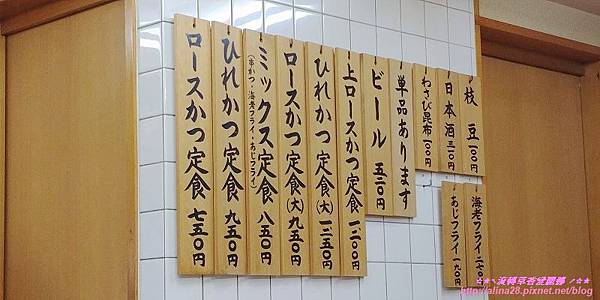 枝豆 一〇〇円
日本酒 三一〇円
わさび昆布 一〇〇円
単品あります
ビール 五二〇円
上ロースかつ定食 一二〇〇円
ひれかつ定食(大) 一三五〇円
ロースかつ定食(大) 九五〇円
ミックス定食 八五〇円
(串かつ・海老フライ・あじフライ)
ひれかつ定食 九五〇円
ロースかつ定食 七五〇円
海老フライ
あじフライ 一九〇円
http://alina28.pixnet.net/blog